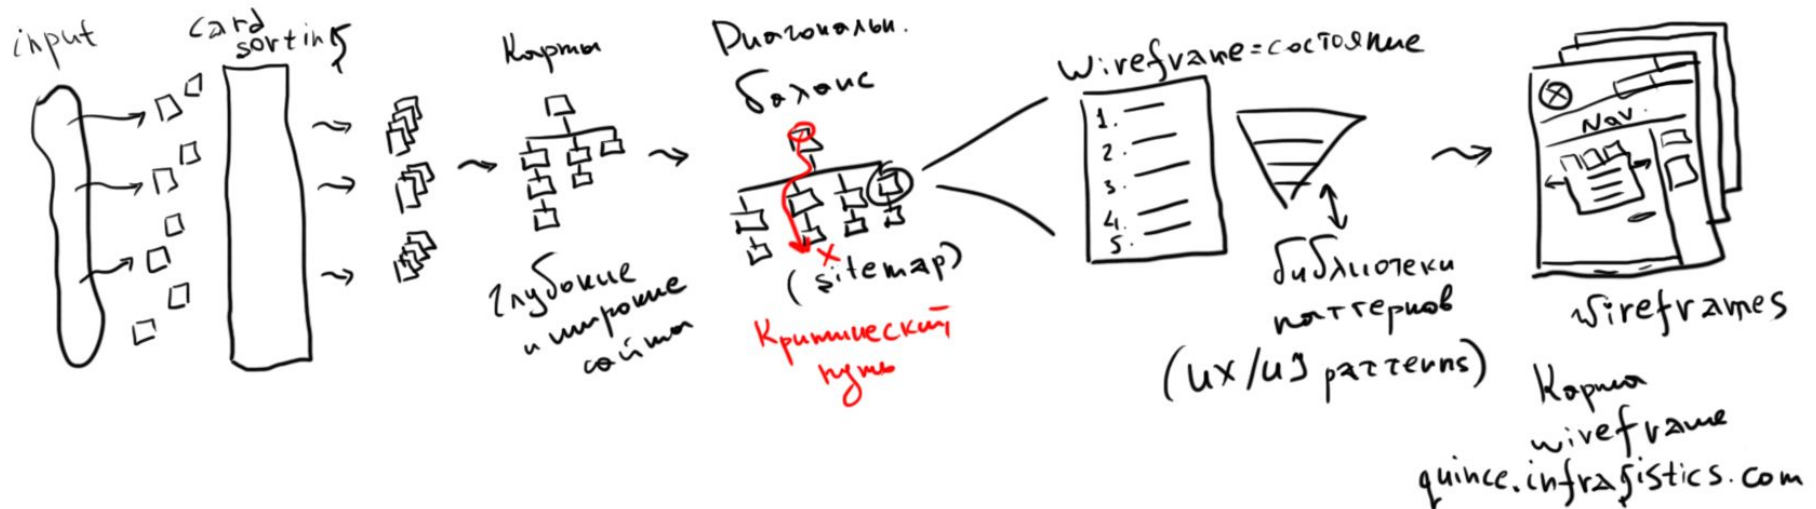 input
card
sorting
Карты
глубокие
и широкие
сайты
Диагональн.
баланс
(sitemap)
Критический
путь
Wireframe=состояние
1.
2.
3.
4.
5.
библиотеки
паттернов
(UX/UI patterns)
Nav.
Wireframes
Карта
wireframe
quince.infragistics.com